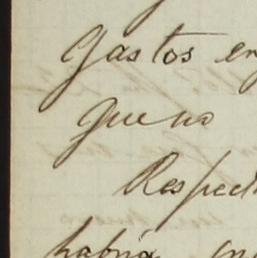 Gastos en
que no
Respect
habria